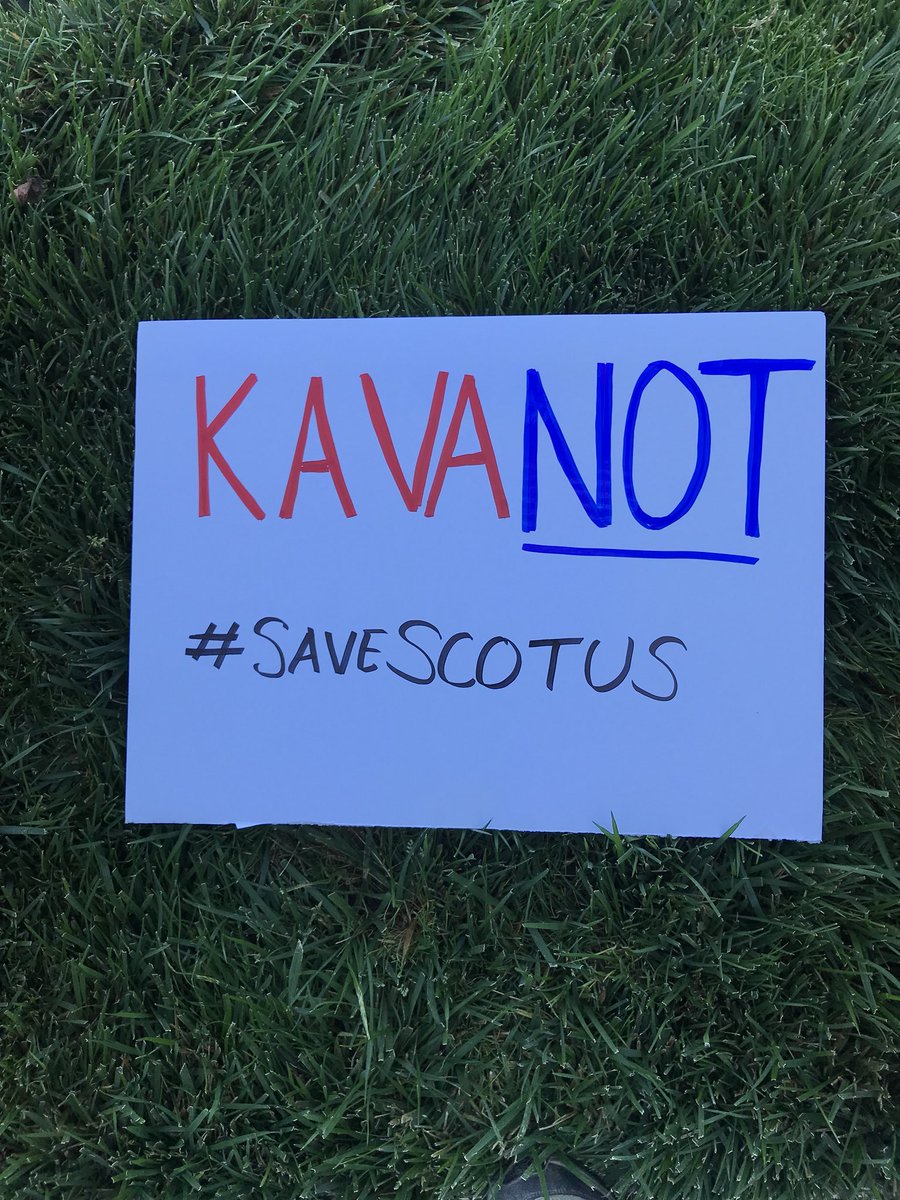 KAVANOT
#SAVESCOTUS